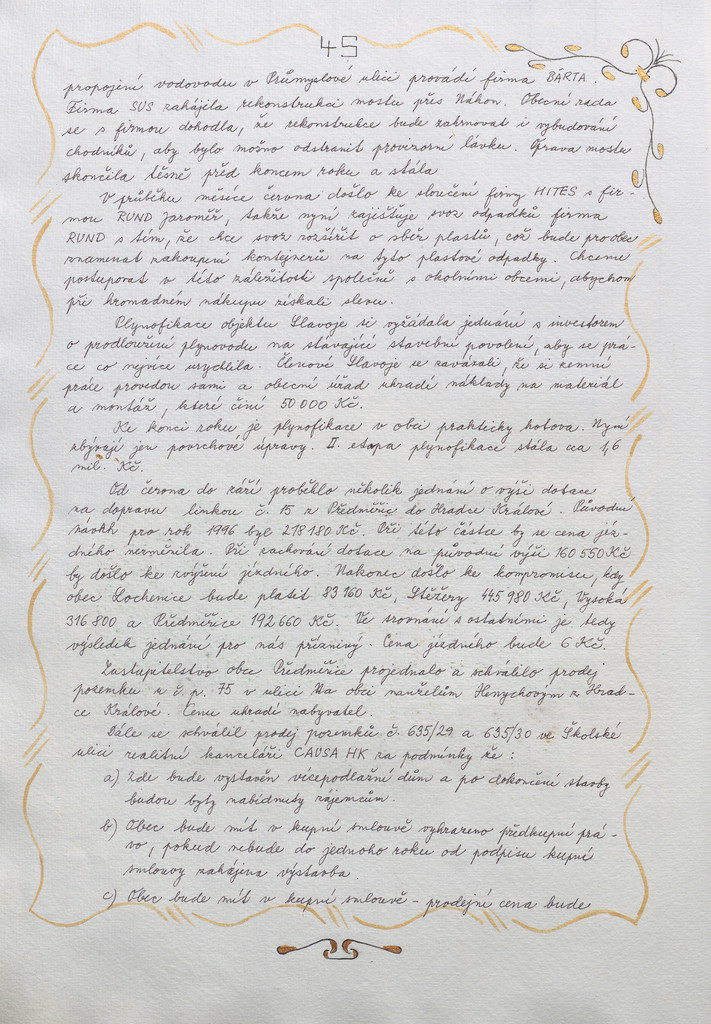 45
propojení vodovodu v Průmyslové ulici provádí firma BÁRTA.
Firma SUS zahájila rekonstrukci mostu přes Náhon. Obecní rada
se s firmou dohodla, že rekonstrukce bude zahrnovat i vybudování
chodníků, aby bylo možno odstranit provizorní lávku. Oprava mostu
skončila těsně před koncem roku a stála
V průběhu měsíce června došlo ke sloučení firmy HITES s fir-
mou RUND Jaroměř, takže nyní zajišťuje svoz odpadků firma
RUND s tím, že chce svoz rozšířit o sběr plastů, což bude pro obec
znamenat zakoupení kontejnerů na tyto plastové odpadky. Chceme
postupovat v této záležitosti společně s okolními obcemi, abychom
při hromadném nákupu získali slevu.
Plynofikace objektu Slavoje si vyžádala jednání s investorem
o prodloužení plynovodu na stávající stavební povolení, aby se prá-
ce co nejvíce urychlila. Členové Slavoje se zavázali, že si zemní
práce provedou sami a obecní úřad uhradí náklady na materiál
a montáž, které činí 50 000 Kč.
Ke konci roku je plynofikace v obci prakticky hotova. Nyní
zbývají jen povrchové úpravy. II. etapa plynofikace stála cca 1,6
mil. Kč.
Od června do září proběhlo několik jednání o výši dotace
na dopravu linkou č. 15 z Předměřic do Hradce Králové. Původní
návrh pro rok 1996 byl 218 180 Kč. Při této částce by se cena jíz-
dného nezměnila. Při zachování dotace na původní výši 160 550 Kč
by došlo ke zvýšení jízdného. Nakonec došlo ke kompromisu, kdy
obec Lochenice bude platit 83 160 Kč, Stěžery 445 980 Kč, Vysoká
316 800 a Předměřice 192 660 Kč. Ve srovnání s ostatními je tedy
výsledek jednání pro nás příznivý. Cena jízdného bude 6 Kč.
Zastupitelstvo obce Předměřice projednalo a schválilo prodej
pozemku z č. p. 75 v ulici Na obci manželům Henychovým z Hrad-
ce Králové. Cenu uhradí nabyvatel.
Dále se schválil prodej pozemků č. 635/29 a 635/30 ve Školské
ulici realitní kanceláři CAUSA HK za podmínky že:
a) Zde bude vystavěn vícepodlažní dům a po dokončení stavby
budou byty nabídnuty zájemcům.
b) Obec bude mít v kupní smlouvě vyhrazeno předkupní prá-
vo, pokud nebude do jednoho roku od podpisu kupní
smlouvy zahájena výstavba.
c) Obec bude mít v kupní smlouvě - prodejní cena bude